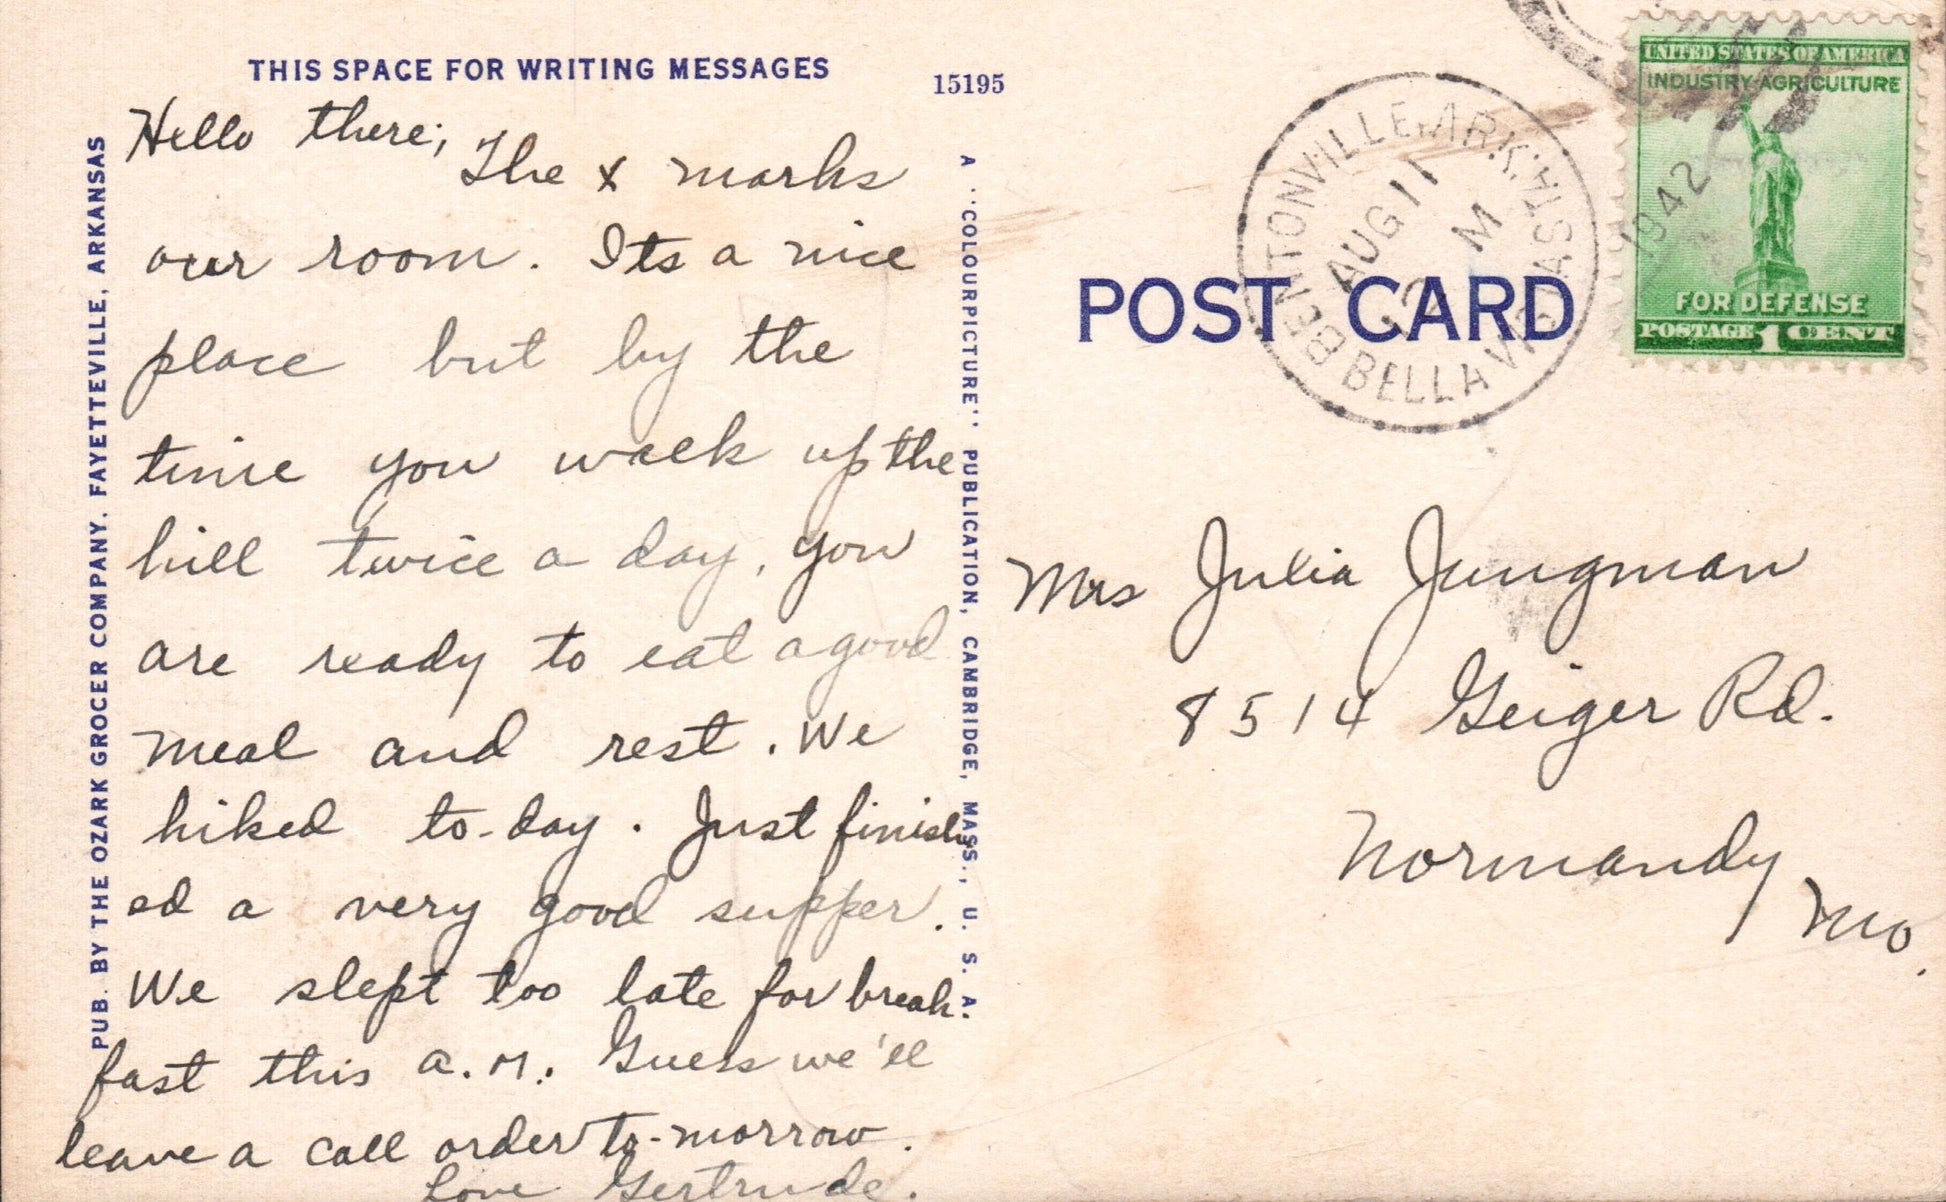 THIS SPACE FOR WRITING MESSAGES
15195
Hello there;
The x marks
our room. Its a nice
place but by the
time you walk up the
hill twice a day, you
are ready to eat a good
meal and rest. We
hiked to-day. Just finish
ed a very good supper.
We slept too late for break-
fast this a.m. Guess we'll
leave a call order to-morrow.
Love Gertrude.
PUB. BY THE OZARK GROCER COMPANY. FAYETTEVILLE, ARKANSAS
A "COLOURPICTURE" PUBLICATION, CAMBRIDGE, MASS., U. S. A.
POST CARD
BENTONVILLE, ARK.
AUG 11
12 M
1942
BELLA VISTA
UNITED STATES OF AMERICA
INDUSTRY-AGRICULTURE
FOR DEFENSE
POSTAGE 1 CENT
Mrs Julia Jungman
8514 Geiger Rd.
Normandy
Mo.